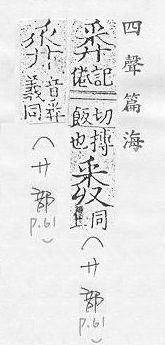 四聲篇海
𢍏記切搏飯也 同上（廾部 p.61）
音義同（廾部 p.61）